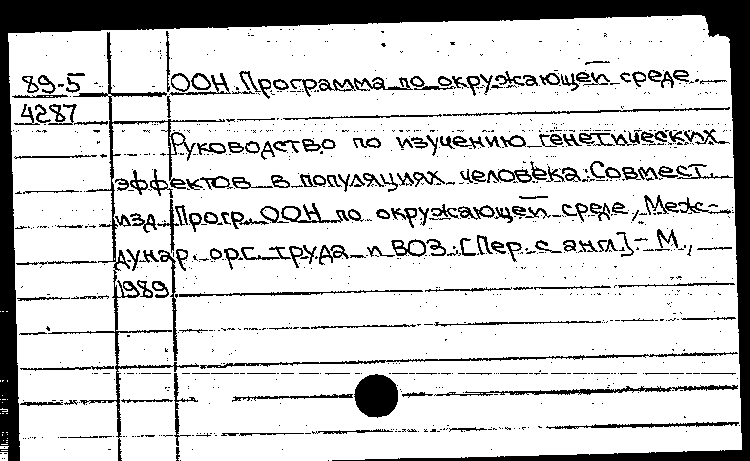 89-5 ООН. Программа по окружающей среде.
4287
Руководство по изучению генетических
эффектов в популяциях человека: Совмест.
изд. Прогр. ООН по окружающей среде, Меж-
дунар. орг. труда и ВОЗ: [Пер. с англ] - М.,
1989